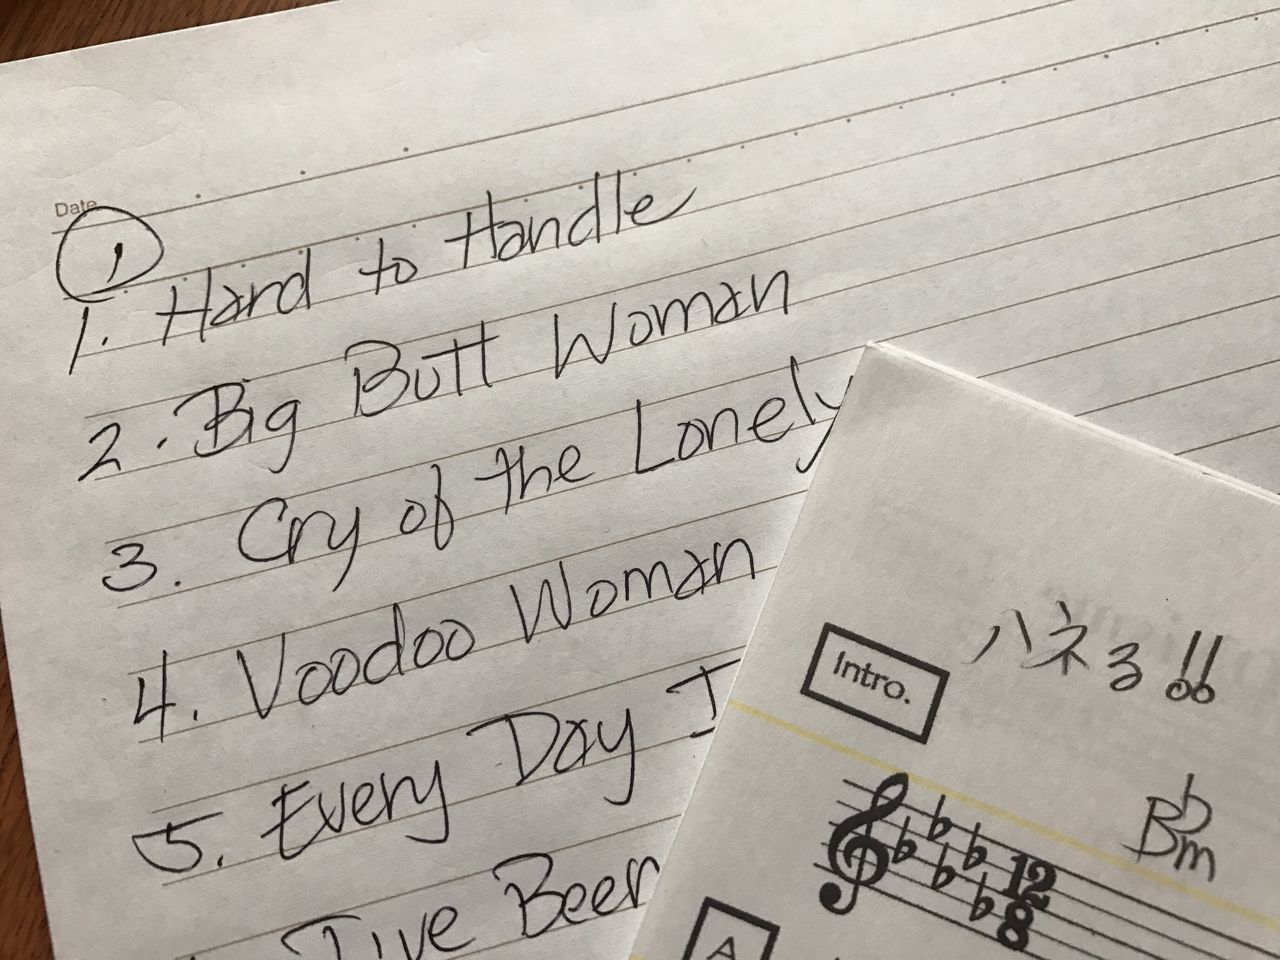 Date
①
1. Hard to Handle
2. Big Butt Woman
3. Cry of the Lonely
4. Voodoo Woman
5. Every Day I
Jive Beer
Intro.
ハネる!!
B♭m
12
8
A